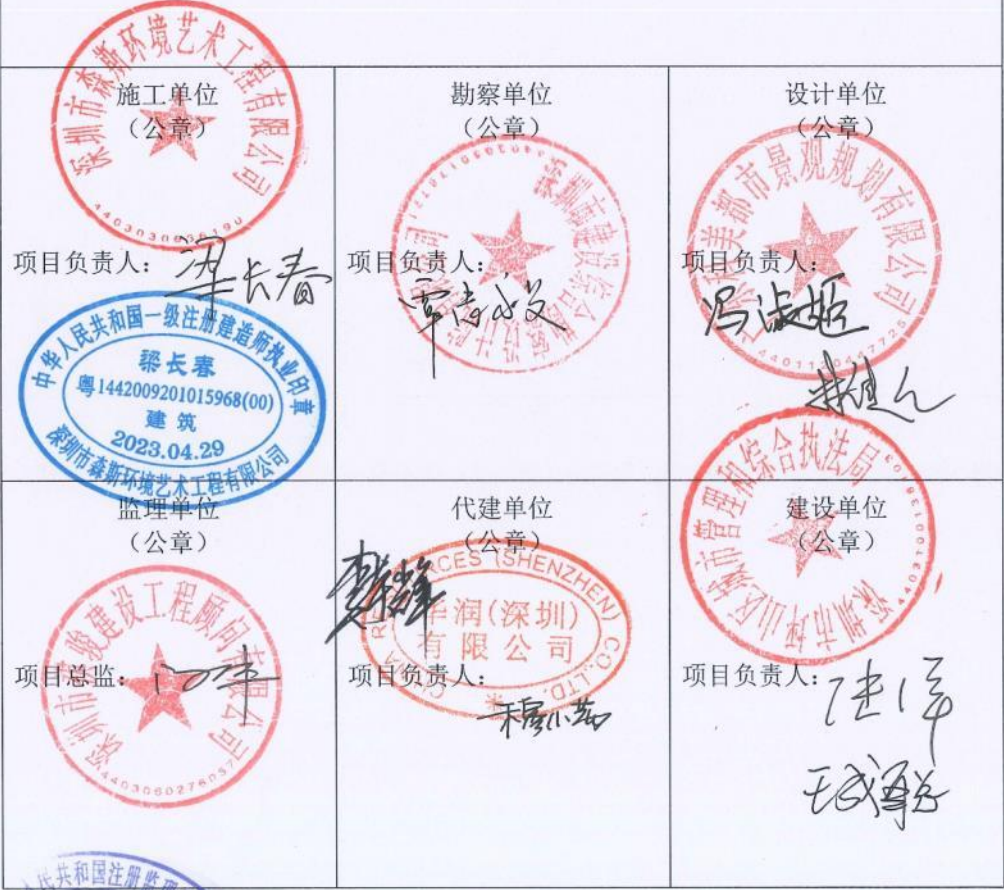 施工单位
（公章）
深圳市森斯环境艺术工程有限公司
项目负责人：梁长春
中华人民共和国一级注册建造师执业印章
梁长春
粤1442009201015968(00)
建筑
2023.04.29
深圳市森斯环境艺术工程有限公司
勘察单位
（公章）
项目负责人：
设计单位
（公章）
都市景观规划有限公司
项目负责人：
冯淑姬
监理单位
（公章）
骏建设工程顾问有限公司
4403060276037
项目总监：
代建单位
（公章）
CHINA RESOURCES (SHENZHEN) CO.,LTD.
华润(深圳)
有限公司
项目负责人：
建设单位
（公章）
深圳市坪山区城市管理和综合执法局
项目负责人：
人民共和国注册监理